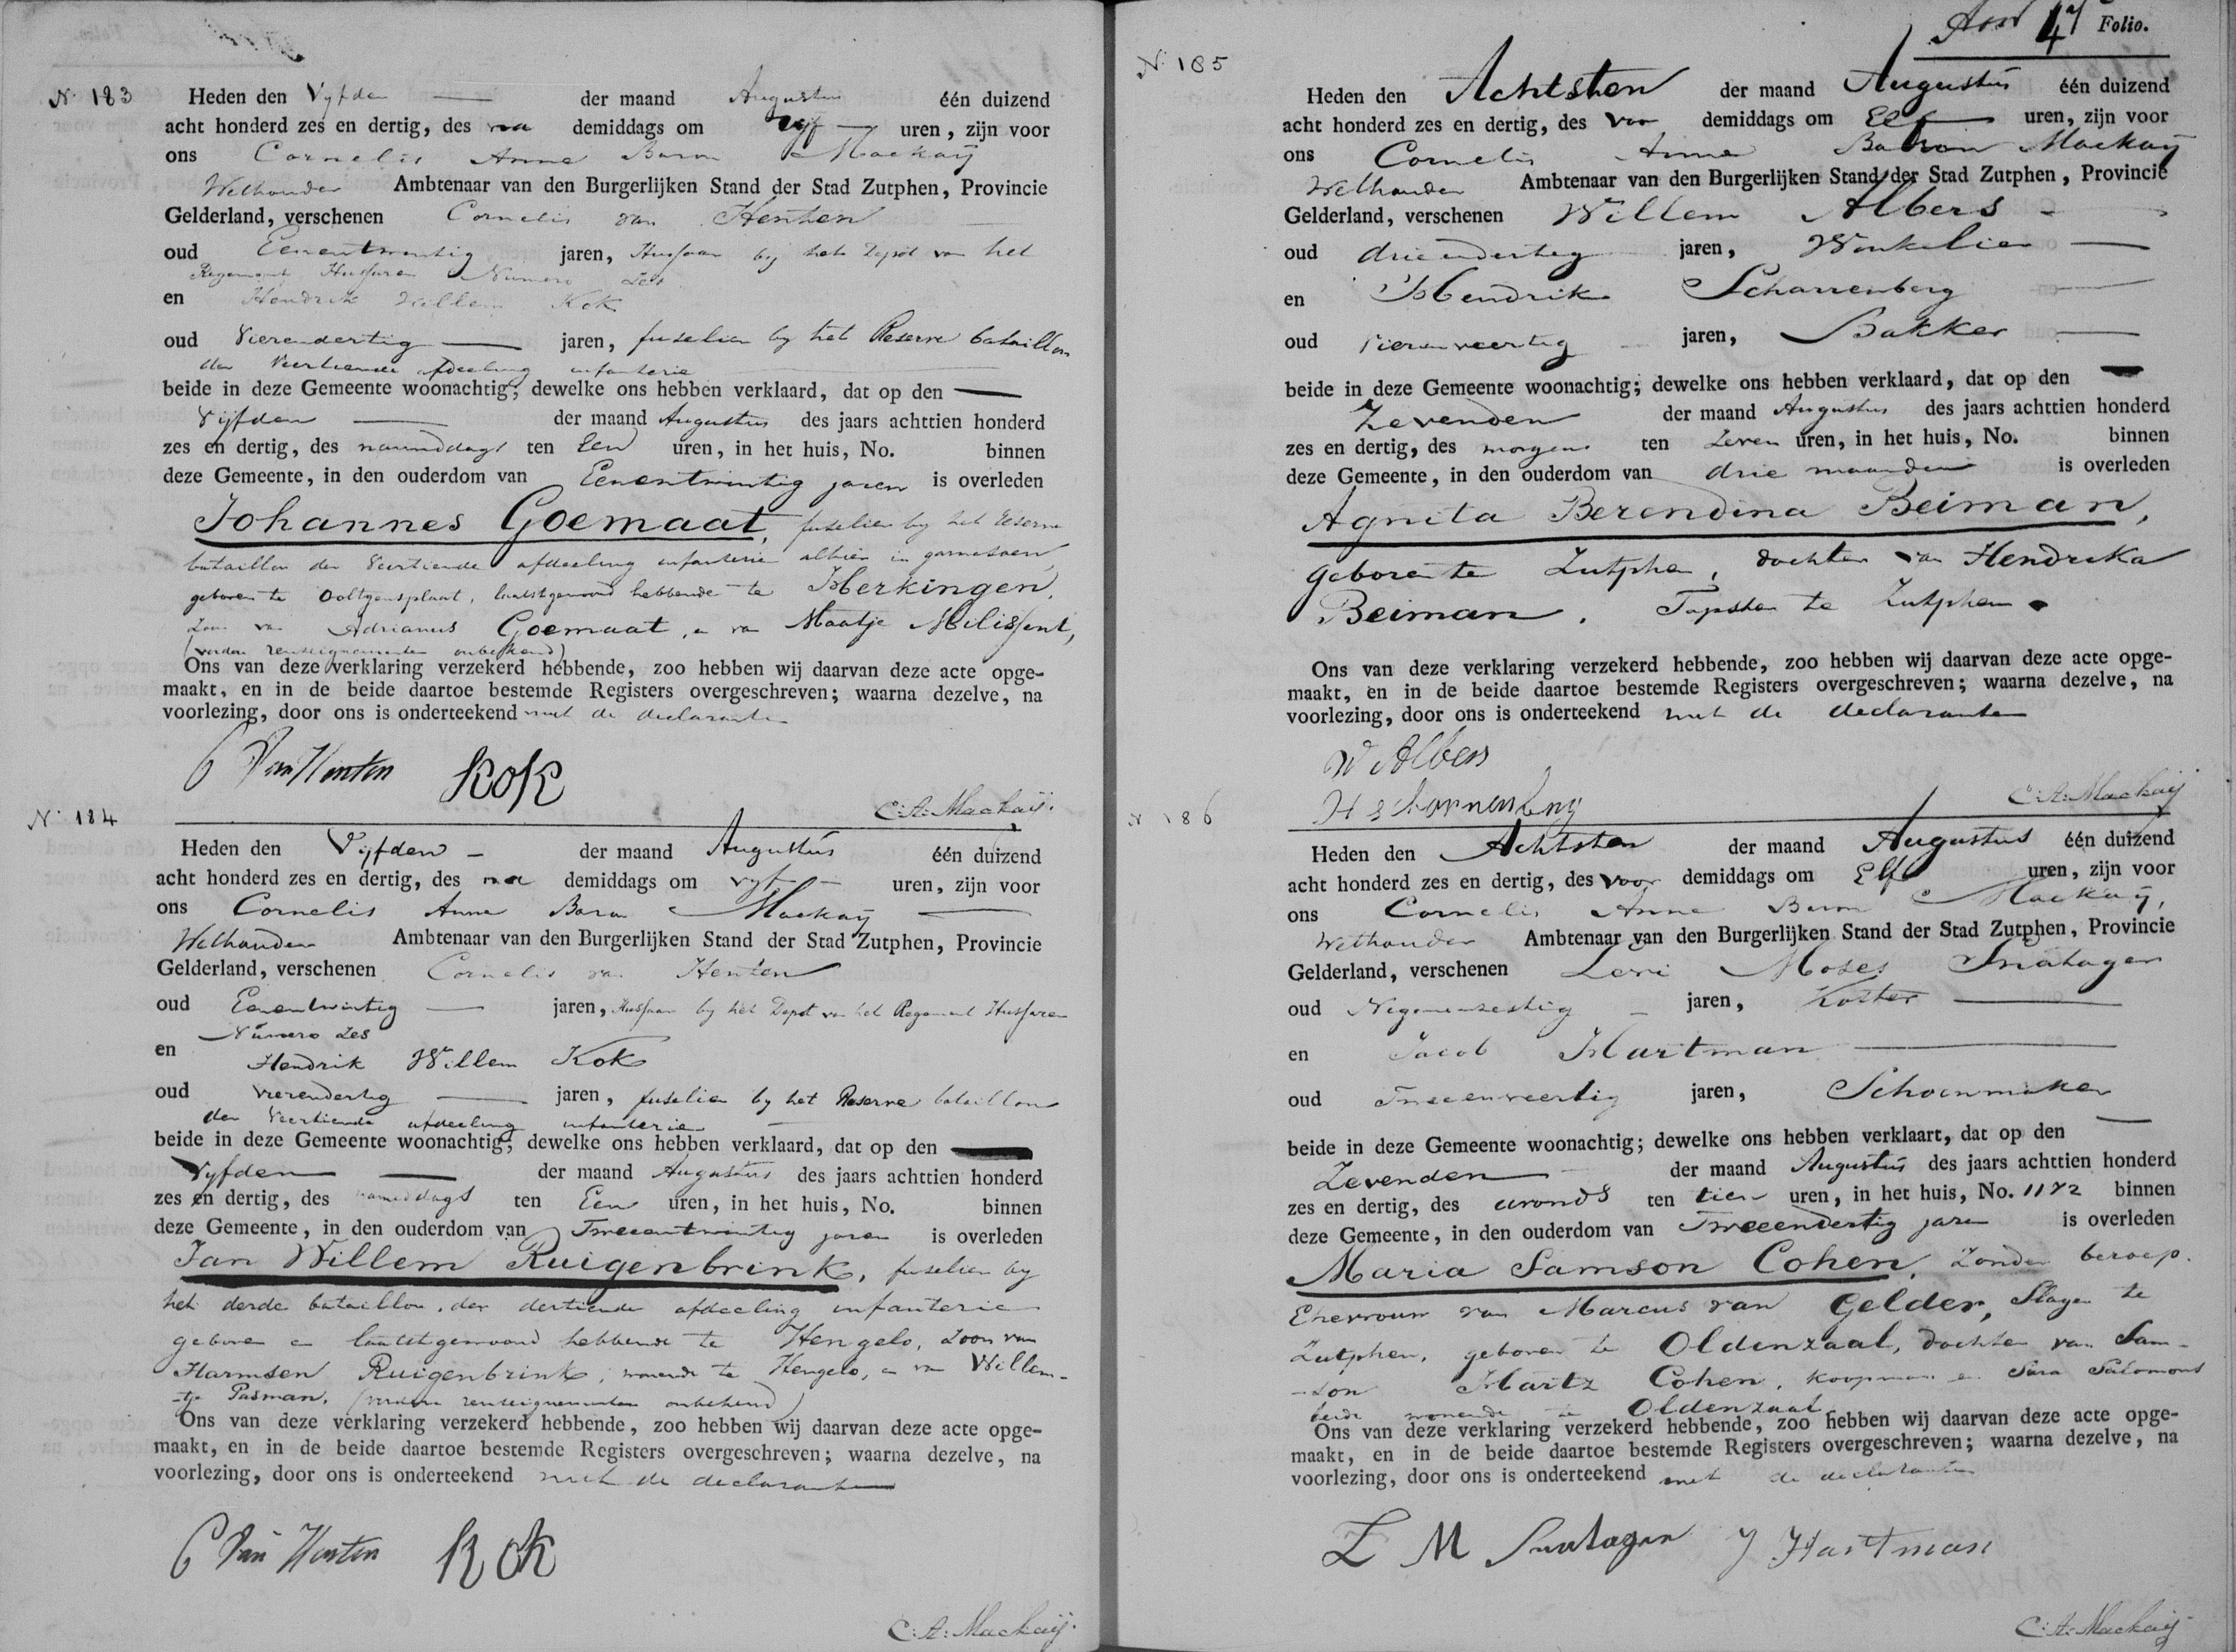 N. 183
Heden den Vyfden der maand Augustus één duizend
acht honderd zes en dertig, des na demiddags om vyf uren, zijn voor
ons Cornelis Anne Baron Mackaÿ
Wethouder Ambtenaar van den Burgerlijken Stand der Stad Zutphen, Provincie
Gelderland, verschenen Cornelis van Henten
oud Eenentwintig jaren, Hussaar by het Depot van het
Regement Hussaren Numero Zes
en Hendrik Willem Kok
oud Vierendertig jaren, fuselier by het Reserve bataillon
der Veertiende afdeeling infanterie
beide in deze Gemeente woonachtig; dewelke ons hebben verklaard, dat op den
Vijfden der maand Augustus des jaars achttien honderd
zes en dertig, des namiddags ten Een uren, in het huis, No. binnen
deze Gemeente, in den ouderdom van Eenentwintig jaren is overleden
Johannes Goemaat, fuselier by het Reserve
bataillon der Veertiende afdeeling infanterie alhier in garnisoen,
geboren te Ooltgensplaat, laatstgewoond hebbende te Herkingen,
Zoon van Adrianus Goemaat, en van Maatje Milissent,
(verdere renseignementen onbekend)
Ons van deze verklaring verzekerd hebbende, zoo hebben wij daarvan deze acte opge-
maakt, en in de beide daartoe bestemde Registers overgeschreven; waarna dezelve, na
voorlezing, door ons is onderteekend met de declaranten
C Van Henten Kok
C: A: Mackaij.
N. 184
Heden den Vijfden der maand Augustus één duizend
acht honderd zes en dertig, des na demiddags om vyf uren, zijn voor
ons Cornelis Anne Baron Mackaÿ
Wethouder Ambtenaar van den Burgerlijken Stand der Stad Zutphen, Provincie
Gelderland, verschenen Cornelis van Henten
oud Eenentwintig jaren, Hussaar by het Depot van het Regement Hussaren
Numero Zes
en Hendrik Willem Kok
oud vierendertig jaren, fuselier by het Reserve bataillon
der Veertiende afdeeling infanterie
beide in deze Gemeente woonachtig; dewelke ons hebben verklaard, dat op den
Vyfden der maand Augustus des jaars achttien honderd
zes en dertig, des namiddags ten Een uren, in het huis, No. binnen
deze Gemeente, in den ouderdom van Tweeentwintig jaren is overleden
Jan Willem Ruigenbrink, fuselier by
het derde bataillon der dertiende afdeeling infanterie
geboren en laatstgewoond hebbende te Hengelo, Zoon van
Harmsen Ruigenbrink, wonende te Hengelo, en van Willem-
-tje Pasman, (verdere renseignementen onbekend)
Ons van deze verklaring verzekerd hebbende, zoo hebben wij daarvan deze acte opge-
maakt, en in de beide daartoe bestemde Registers overgeschreven; waarna dezelve, na
voorlezing, door ons is onderteekend met de declaranten
C Van Henten Kok
C: A: Mackaij.
47 Folio.
N. 185
Heden den Achtsten der maand Augustus één duizend
acht honderd zes en dertig, des voor demiddags om Elf uren, zijn voor
ons Cornelis Anne Baron Mackaÿ
Wethouder Ambtenaar van den Burgerlijken Stand der Stad Zutphen, Provincie
Gelderland, verschenen Willem Albers
oud drieendertig jaren, Winkelier
en Hendrik Scharrenberg
oud vierenveertig jaren, Bakker
beide in deze Gemeente woonachtig; dewelke ons hebben verklaard, dat op den
Zevenden der maand Augustus des jaars achttien honderd
zes en dertig, des morgens ten Zeven uren, in het huis, No. binnen
deze Gemeente, in den ouderdom van drie maanden is overleden
Agnita Berendina Beiman,
geboren te Zutphen, dochter van Hendrika
Beiman, Tapster te Zutphen.
Ons van deze verklaring verzekerd hebbende, zoo hebben wij daarvan deze acte opge-
maakt, en in de beide daartoe bestemde Registers overgeschreven; waarna dezelve, na
voorlezing, door ons is onderteekend met de declaranten
W Albers
H Scharrenberg
C: A: Mackaij
N 186
Heden den Achtsten der maand Augustus één duizend
acht honderd zes en dertig, des voor demiddags om Elf uren, zijn voor
ons Cornelis Anne Baron Mackaÿ,
Wethouder Ambtenaar van den Burgerlijken Stand der Stad Zutphen, Provincie
Gelderland, verschenen Levi Moses Snatager
oud Negenenzestig jaren, Koster
en Jacob Hartman
oud Tweeenveertig jaren, Schoenmaker
beide in deze Gemeente woonachtig; dewelke ons hebben verklaart, dat op den
Zevenden der maand Augustus des jaars achttien honderd
zes en dertig, des avonds ten tien uren, in het huis, No. 1172 binnen
deze Gemeente, in den ouderdom van Tweeendertig jaren is overleden
Maria Samson Cohen, Zonder beroep.
Ehevrouw van Marcus van Gelder, Slager te
Zutphen, geboren te Oldenzaal, dochter van Sam-
-son Hartz Cohen, koopman en Sara Salomons
beide wonende te Oldenzaal
Ons van deze verklaring verzekerd hebbende, zoo hebben wij daarvan deze acte opge-
maakt, en in de beide daartoe bestemde Registers overgeschreven; waarna dezelve, na
voorlezing, door ons is onderteekend met de declaranten
L M Snatager J Hartman
C: A: Mackaij